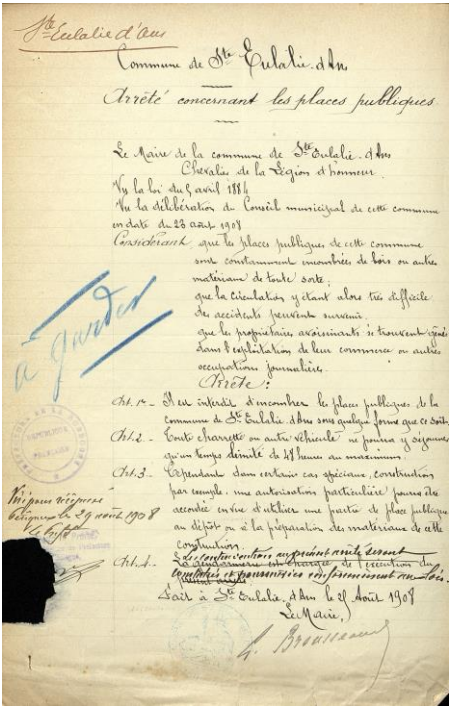 Ste Eulalie d'Ans
Commune de Ste Eulalie d'Ans
Arrêté concernant les places publiques.
Le Maire de la commune de Ste Eulalie d'Ans
Chevalier de la Légion d'honneur.
Vu la loi du 5 avril 1884
Vu la délibération du Conseil municipal de cette commune
en date du 23 août 1908
Considérant, que les places publiques de cette commune
sont constamment encombrées de bois ou autres
matériaux de toute sorte;
que la circulation y étant alors très difficile
des accidents peuvent survenir.
que les propriétaires avoisinants s'trouvent gênés
dans l'exploitation de leur commerce ou autres
occupations journalières.
Arrête:
à garder
Art. 1er_ Il est interdit d'encombrer les places publiques de la
commune de Ste Eulalie d'Ans sous quelque forme que ce soit.
Art. 2._ Toute charrette ou autre véhicule ne pourra y séjourner
qu'un temps limité de 48 heures au maximum.
Art. 3._ Cependant dans certains cas spéciaux, construction
par exemple, une autorisation particulière pourra être
accordée en vue d'utiliser une partie de place publique
au dépôt ou à la préparation des matériaux de cette
construction.
Art. 4._ Les contraventions au présent arrêté seront
La gendarmerie est chargée de l'exécution du
constatées et poursuivies conformément aux lois.
présent arrêté
Fait à Ste Eulalie d'Ans le 25 Août 1908
Le Maire,
Vu pour récépissé
Périgueux le 29 août 1908
REPUBLIQUE
FRANÇAISE